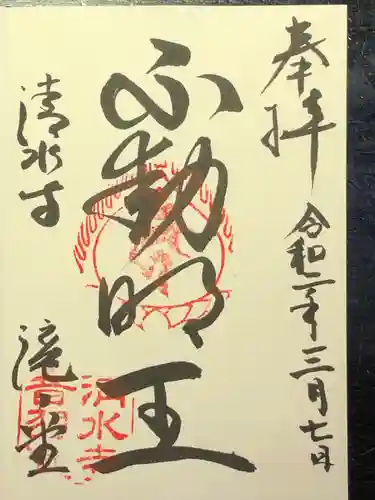 奉拝
令和二年三月七日
不動明王
清水寺
滝之堂
清水寺